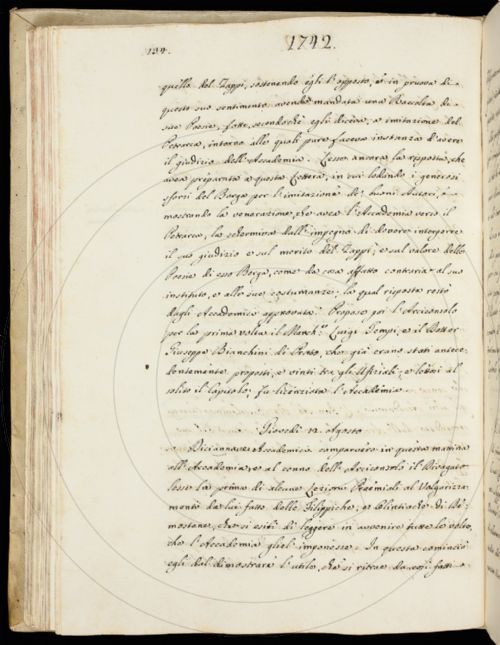 134.
1742.
quello del Zappi, sostenendo egli l'opposto, e in pruova di
questo suo sentimento avendo mandata una Raccolta di
sue Poesie, fatte, secondochè egli diceva, a imitazione del
Petrarca, intorno alle quali pure faceva instanza d'avere
il giudizio dell'Accademia. Lesse ancora la risposta, che
avea preparata a questa Lettera, in cui lodando i generosi
sforzi del Borga per l'imitazione de' buoni Autori, e
mostrando la venerazione, che avea l'Accademia verso il
Petrarca, la dall'impegno di dovere interporre
il suo giudizio e sul merito del Zappi, e sul valore delle
Poesie di esso Borga, come da cosa affatto contraria al suo
instituto, e alle sue costumanze; la qual risposta restò
dagli Accademici approvata. Propose poi l'Arciconsolo
per la prima volta il March.se Luigi Tempi, e il Dottor
Giuseppe Bianchini di Prato, che già erano stati antece-
dentemente proposti, e vinti tra gli Ufiziali; e lettosi al
solito il Capitolo, fu licenziata l'Accademia.
Giovedì 12. Agosto
Diciannove Accademici comparvero in questa mattina
all'Accademia, e al cenno dell'Arciconsolo il
lesse la prima di alcune Lezioni Proemiali al Volgarizza-
mento da lui fatto delle Filippiche, e Olintiache di De-
mostene, che si esibì di leggere in avvenire tutte le volte,
che l'Accademia gliel'imponesse. In questa cominciò
egli dal dimostrare l'utile, che si ritrae da così fatti